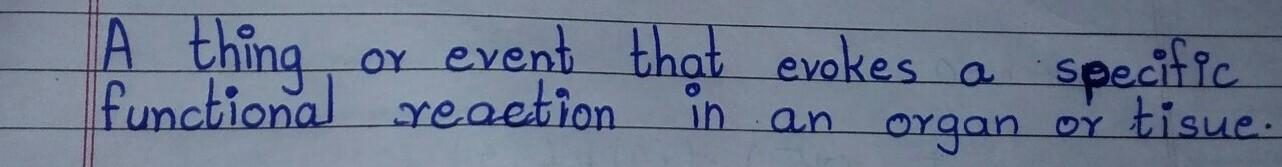 A thing or event that evokes a specific
functional reaction in an organ or tisue.